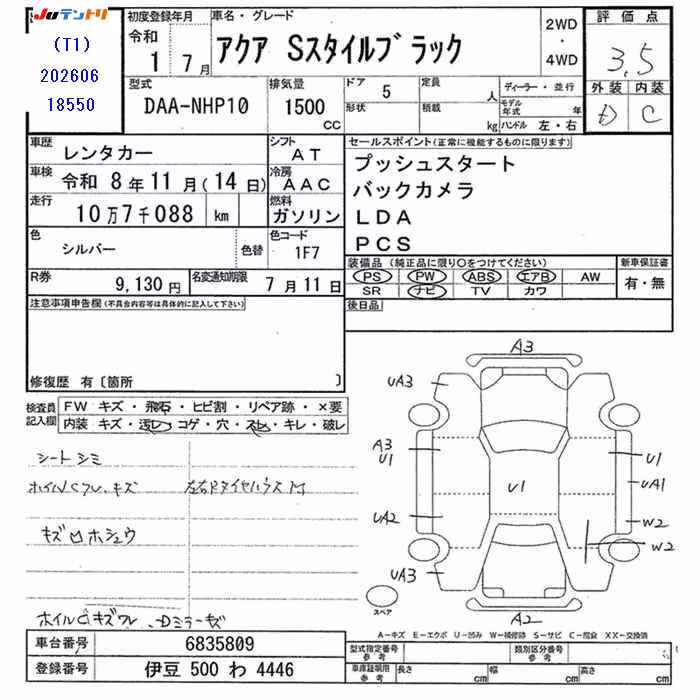 Juテントリ
(T1)
202606
18550
初度登録年月
令和
1 7月
車名・グレード
アクア Sスタイルブラック
2WD
・
4WD
評価点
3.5
外装 内装
D C
型式
DAA-NHP10
排気量
1500
CC
ドア
5
形状
定員
人
積載
kg
ディーラー・並行
モデル年式 年
ハンドル 左・右
車歴
レンタカー
シフト
AT
車検
令和 8年11月(14日)
冷房
AAC
走行
10万7千088 km
燃料
ガソリン
色
シルバー
色替
色コード
1F7
R券
9,130円
名変通知期限
7月11日
セールスポイント(正常に機能するものに限ります)
プッシュスタート
バックカメラ
LDA
PCS
装備品 (純正品に限り○をつけてください)
PS PW ABS エアB AW
SR ナビ TV カワ
新車保証書
有・無
後日品
注意事項申告欄(不具合内容等は具体的に記入して下さい)
修復歴 有〔箇所 〕
検査員記入欄
FW キズ・飛石・ヒビ割・リペア跡・×要
内装 キズ・汚レ・コゲ・穴・スレ・キレ・破レ
シートシミ
ホイルCワレ、キズ
左右RタイヤハウスM
ホシュウ
A3
UA3
A3
U1
UA2
UA3
U1
U1
UA1
W2
W2
A2
スペア
A-キズ E-エクボ U-凹み W-補修跡 S-サビ C-腐食 XX-交換済
車台番号
6835809
登録番号
伊豆 500 わ 4446
型式指定番号
参考
類別区分番号
参考
車庫証明用
参考
長さ cm
幅 cm
高さ cm